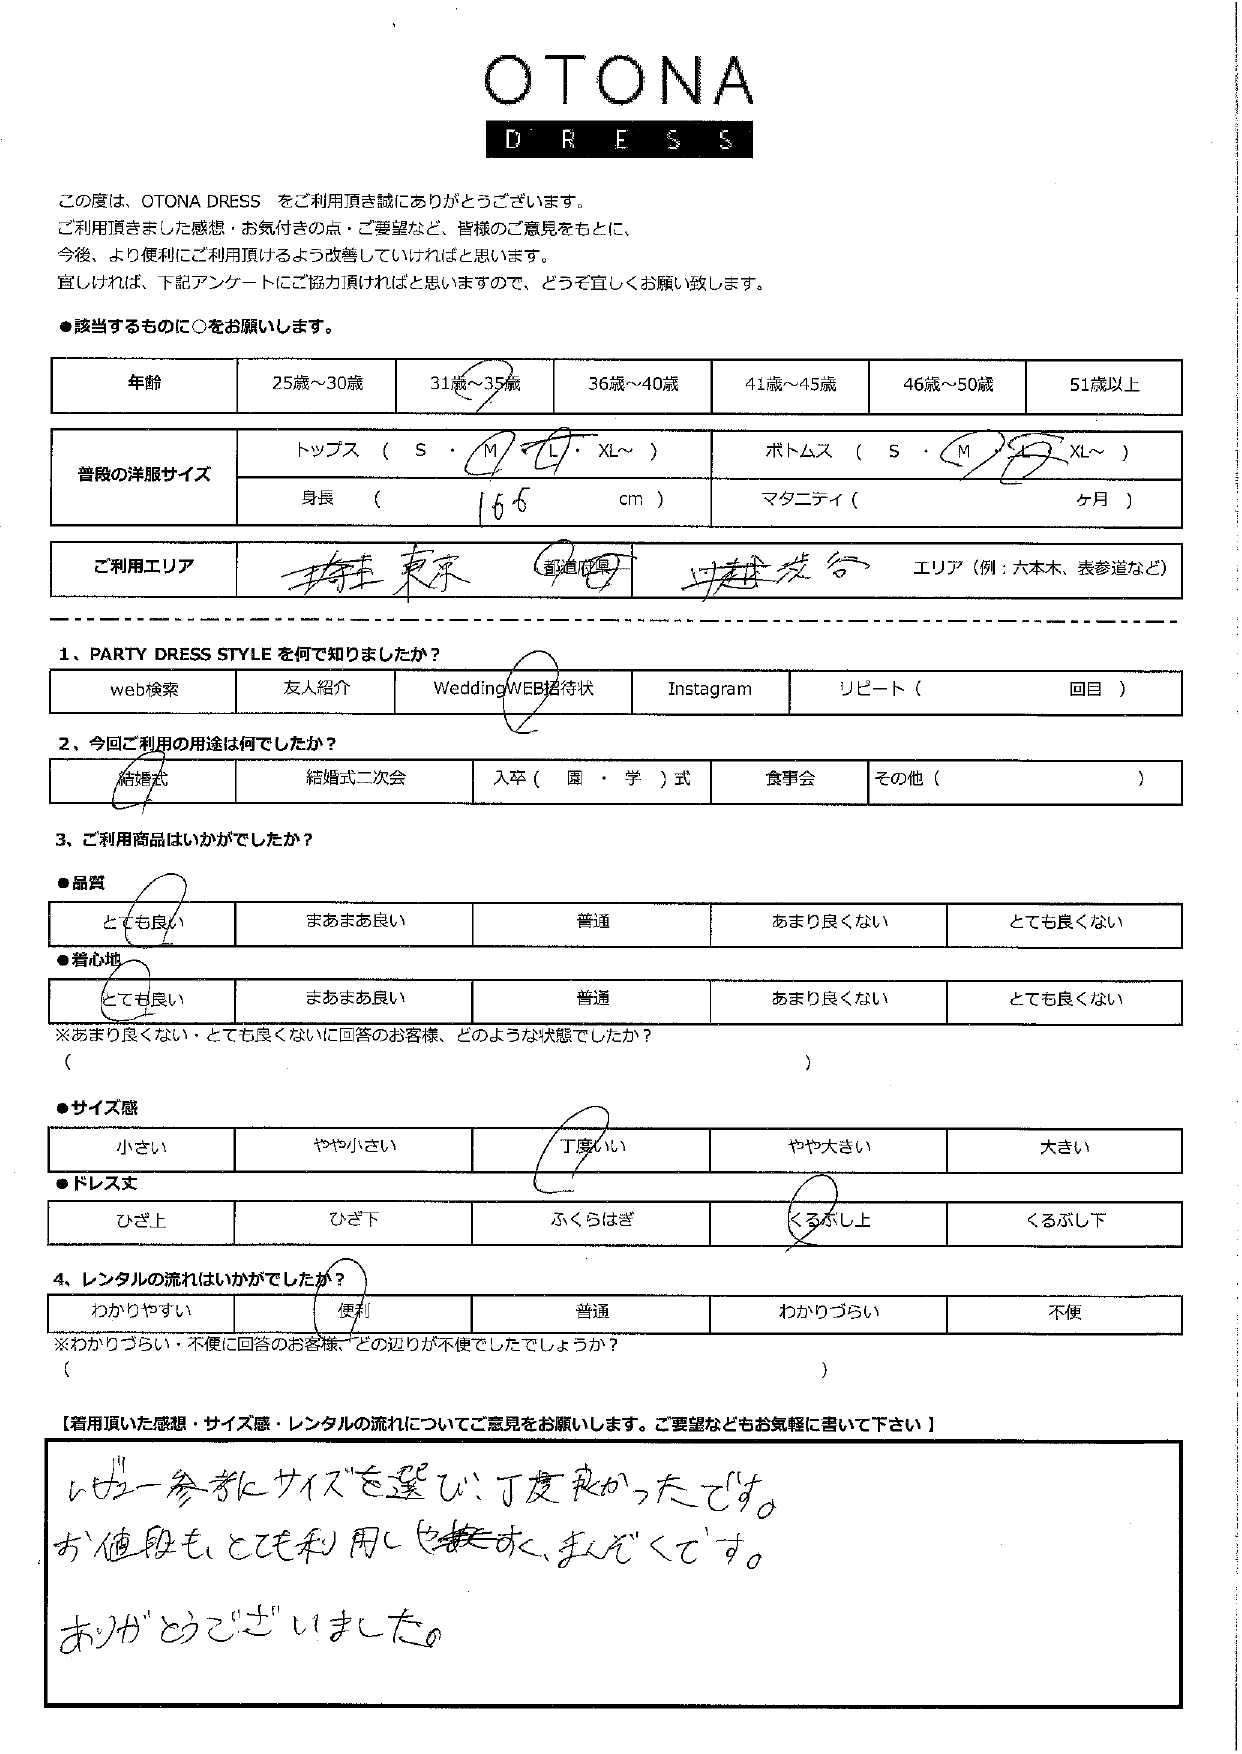 OTONA
DRESS
この度は、OTONA DRESS をご利用頂き誠にありがとうございます。
ご利用頂きました感想・お気付きの点・ご要望など、皆様のご意見をもとに、
今後、より便利にご利用頂けるよう改善していければと思います。
宜しければ、下記アンケートにご協力頂ければと思いますので、どうぞ宜しくお願い致します。
●該当するものに○をお願いします。
年齢 25歳～30歳 31歳～35歳 36歳～40歳 41歳～45歳 46歳～50歳 51歳以上
普段の洋服サイズ トップス ( S ・ M ・ L ・ XL～ ) ボトムス ( S ・ M ・ L ・ XL～ )
身長 ( 166 cm ) マタニティ ( ケ月 )
ご利用エリア 埼玉 東京 都道府県 川越 渋谷 エリア（例：六本木、表参道など）
1、PARTY DRESS STYLE を何で知りましたか？
web検索 友人紹介 WeddingWEB招待状 Instagram リピート ( 回目 )
2、今回ご利用の用途は何でしたか？
結婚式 結婚式二次会 入卒 ( 園 ・ 学 ) 式 食事会 その他 ( )
3、ご利用商品はいかがでしたか？
●品質
とても良い まあまあ良い 普通 あまり良くない とても良くない
●着心地
とても良い まあまあ良い 普通 あまり良くない とても良くない
※あまり良くない・とても良くないに回答のお客様、どのような状態でしたか？
( )
●サイズ感
小さい やや小さい 丁度いい やや大きい 大きい
●ドレス丈
ひざ上 ひざ下 ふくらはぎ くるぶし上 くるぶし下
4、レンタルの流れはいかがでしたか？
わかりやすい 便利 普通 わかりづらい 不便
※わかりづらい・不便に回答のお客様、どの辺りが不便でしたでしょうか？
( )
【着用頂いた感想・サイズ感・レンタルの流れについてご意見をお願いします。ご要望などもお気軽に書いて下さい】
レビュー参考にサイズを選び、丁度良かったです。
お値段も、とても利用しやすく、まんぞくです。
ありがとうございました。